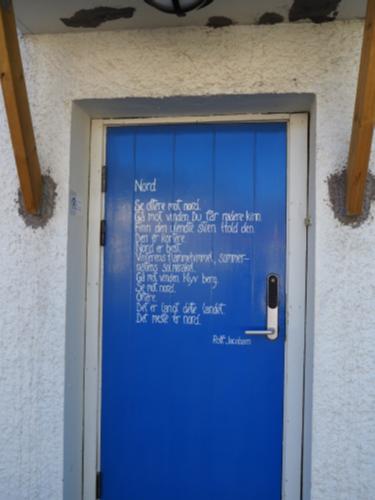 Nord
Se oftere mot nord.
Gå mot vinden, du får rødere kinn.
Finn den ulendte stien. Hold den.
Den er kortere.
Nord er best.
Vinterens flammehimmel, sommer-
nattens solmirakel.
Gå mot vinden. Klyv berg.
Se mot nord.
Oftere.
Det er langt dette landet.
Det meste er nord.
Rolf Jacobsen